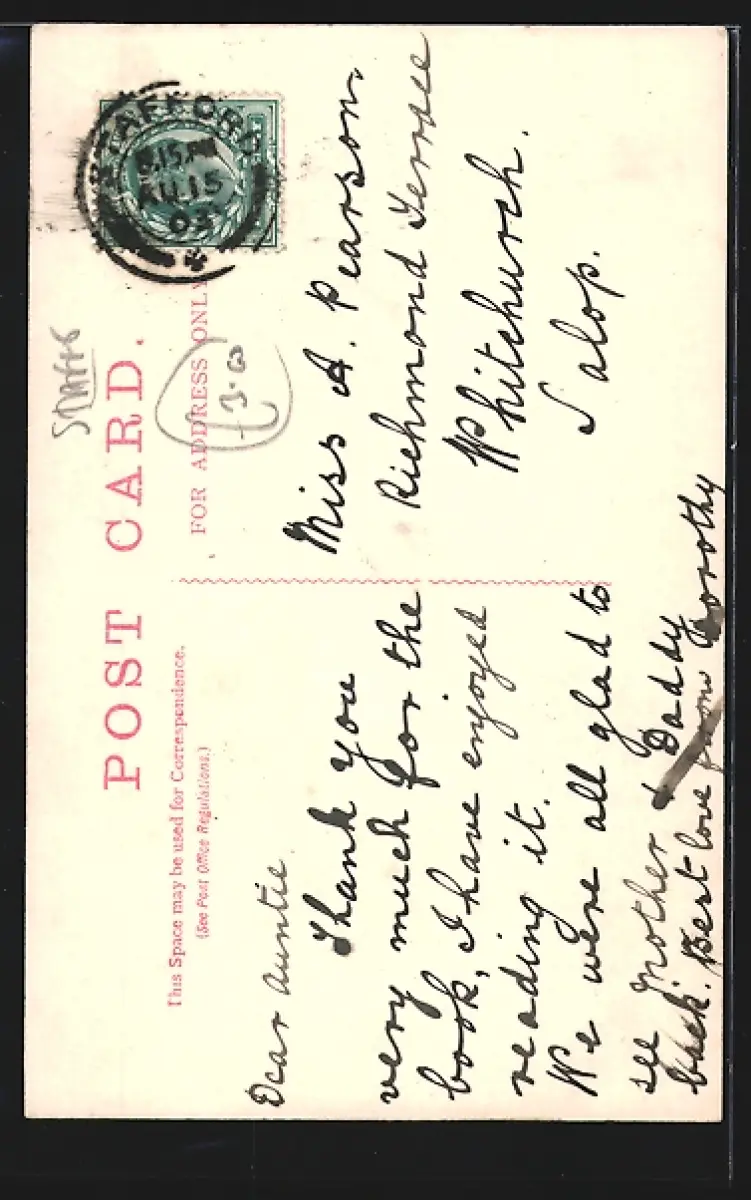 STAFFS
POST CARD.
This Space may be used for Correspondence.
(See Post Office Regulations.)
FOR ADDRESS ONLY
£3.00
STAFFORD
8.15 PM
AU 15
03
Dear Auntie
Thank you
very much for the
book, I have enjoyed
reading it.
We were all glad to
see Mother & Daddy
back. Best love from Dorothy
Miss A. Pearson.
Richmond Terrace
Whitchurch.
Salop.